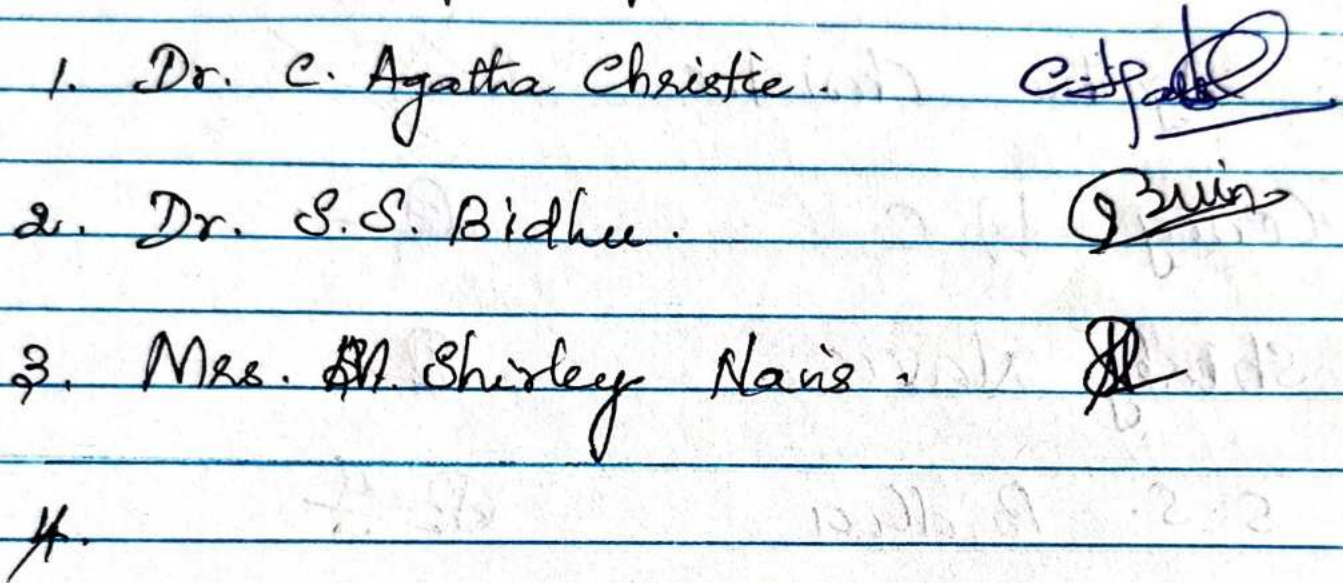 1. Dr. C. Agatha Christie.
2. Dr. S.S. Bidhu.
3. Mrs. Shirley Navis.
4.